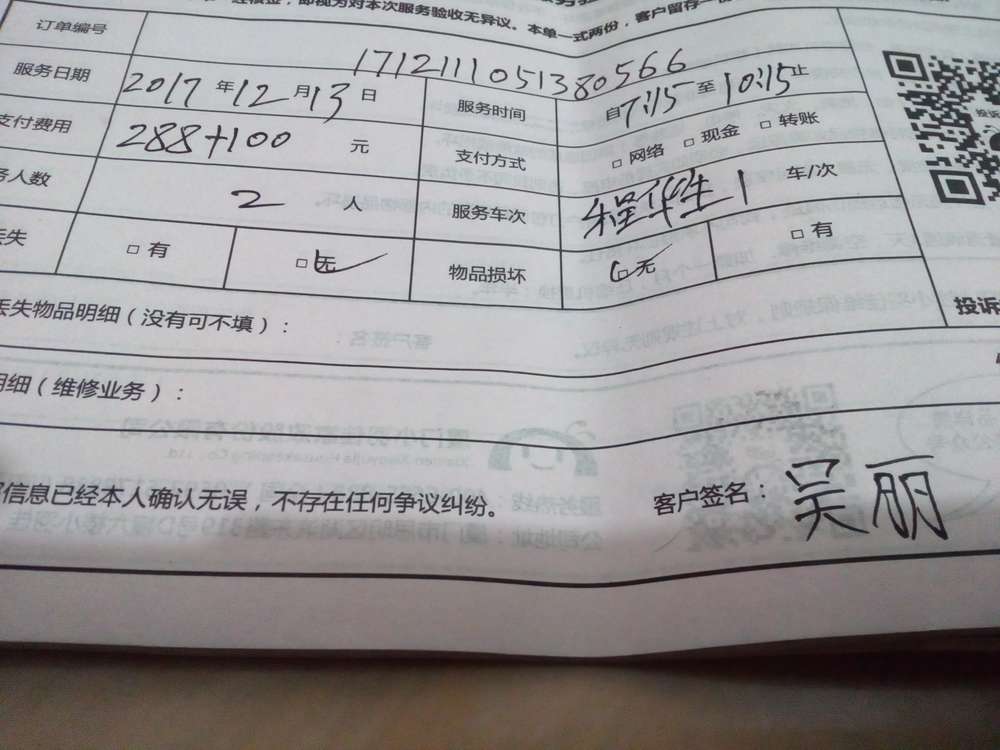 即视为对本次服务验收无异议。本单一式两份,客户留存一份
订单编号 171211105138 0566
服务日期 2017年12月13日 服务时间 自7:15至10:15止
支付费用 288+100 元 支付方式 □网络 □现金 □转账
务人数 2 人 服务车次 1 车/次
丢失 □有 □无 物品损坏 □无 □有
丢失物品明细(没有可不填):
投诉
明细(维修业务):
信息已经本人确认无误,不存在任何争议纠纷。 客户签名:吴丽